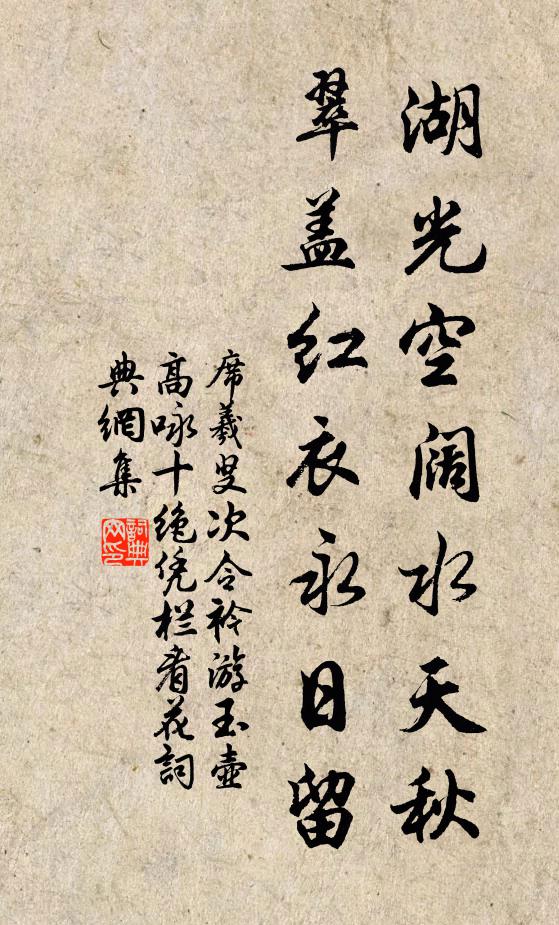 湖光空阔水天秋
翠盖红衣永日留
席羲叟次令衿游玉壶
高咏十绝凭栏看花詞
典網集
詞典
网印